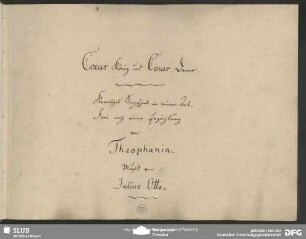 Cœur König und Cœur Dame.
Komisches Singspiel in einem Act.
frei nach einer Erzählung
von
Theophania.
Musik von
Julius Otto.
SLUB
Wir führen Wissen.
DFG